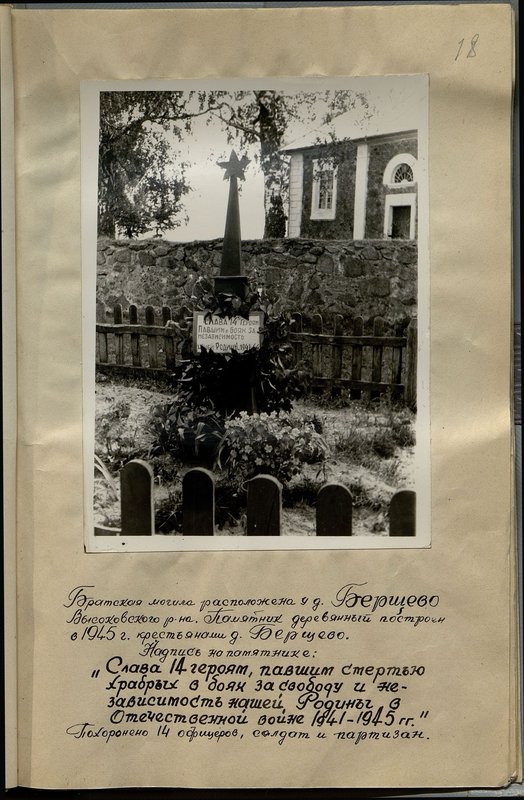 18
СЛАВА 14 ГЕРОЯМ
ПАВШИМ В БОЯХ ЗА
НЕЗАВИСИМОСТЬ
РОДИНЫ
Братская могила расположена у д. Бершево
Высоковского р-на. Памятник деревянный построен
в 1945 г. крестьянами д. Бершево.
Надпись на памятнике:
„Слава 14 героям, павшим смертью
храбрых в боях за свободу и не-
зависимость нашей Родины в
Отечественной войне 1941-1945 гг."
Похоронено 14 офицеров, солдат и партизан.